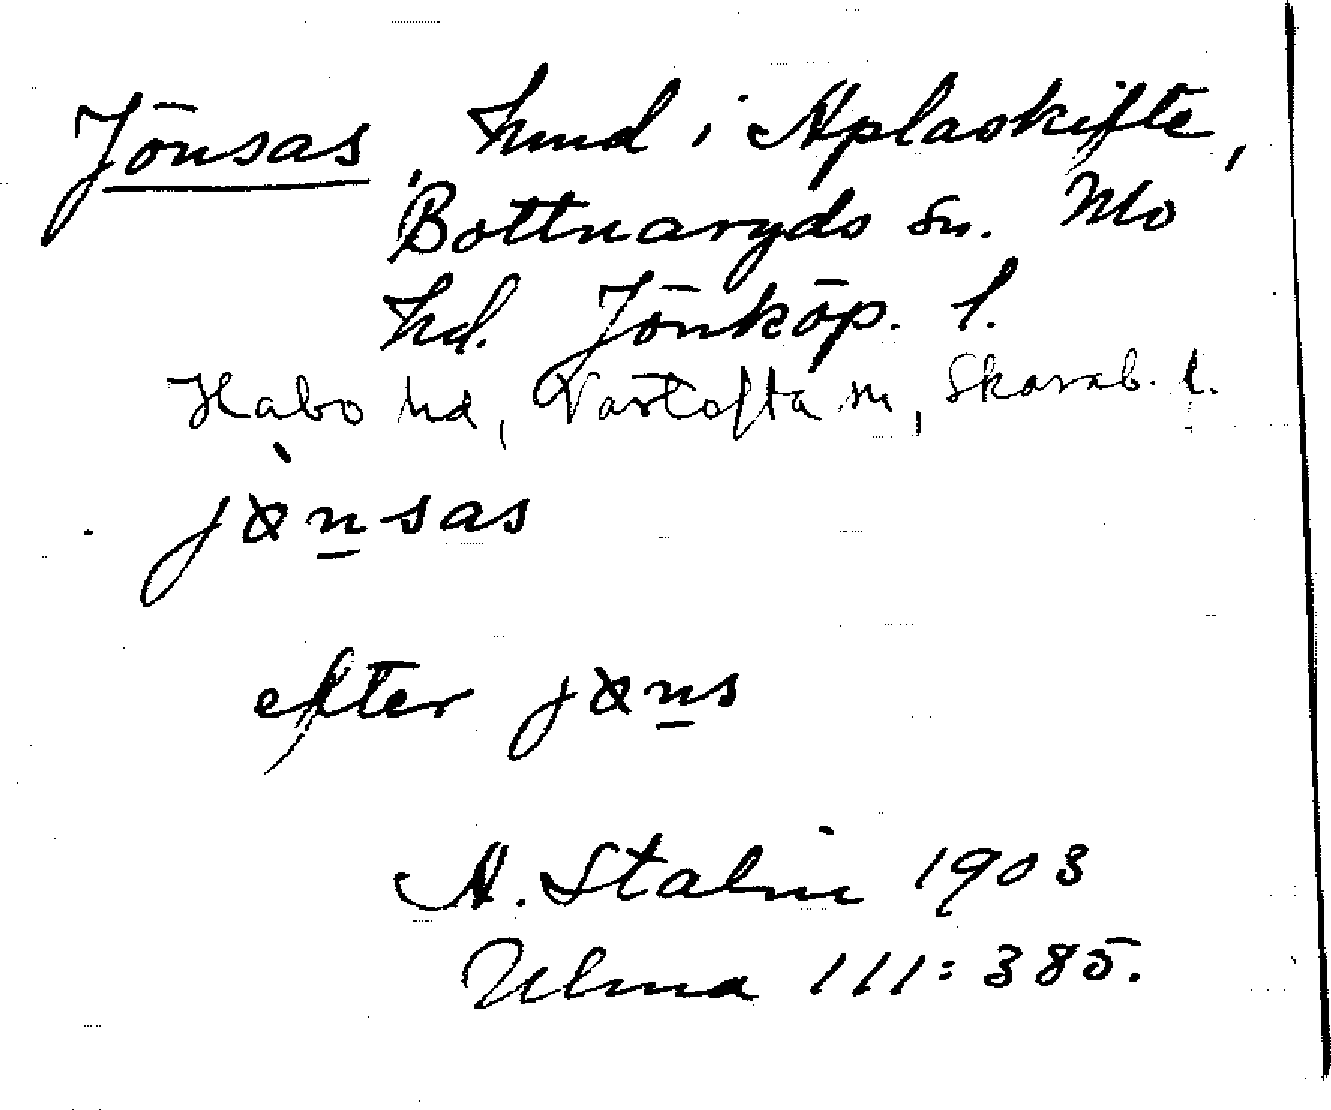 Jönsas, hmd i Aplaskifte,
Bottnaryds sn. Mo
hd. Jönköp. l.
Habo hd, Vartofta sn, Skarab. l.
jönsas
efter jöns
A. Stalin 1903
Ulma 111:385.